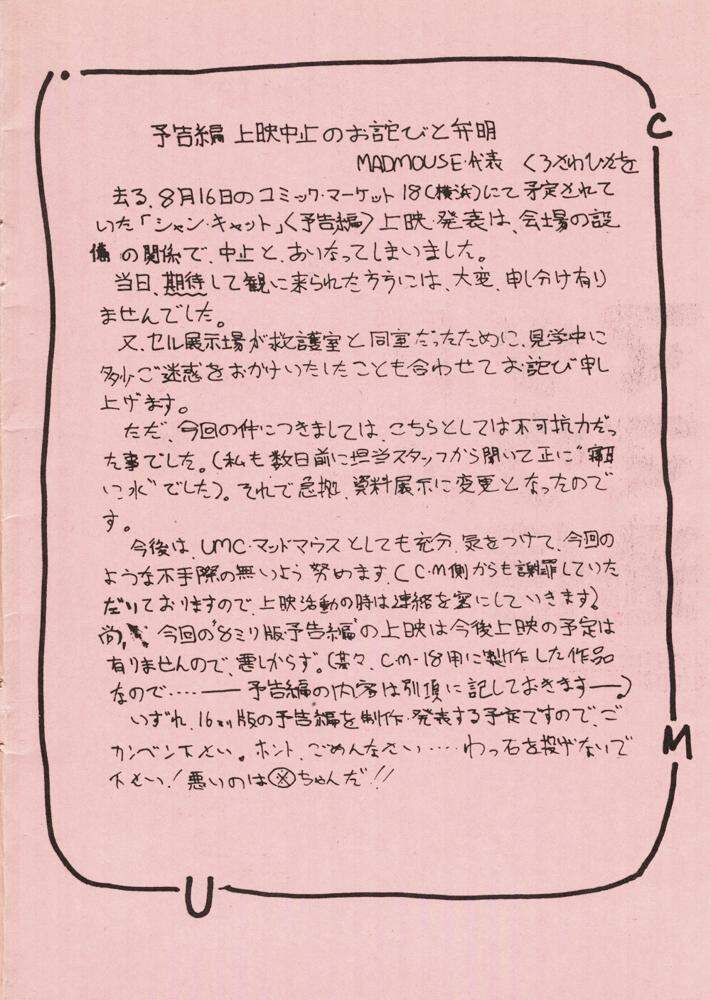 予告編 上映中止のお詫びと弁明
MADMOUSE・代表 くろさわひさを
去る、8月16日のコミック・マーケット18(横浜)にて予定されて
いた「シャン・キャット」〈予告編〉上映・発表は、会場の設
備の関係で、中止と、あいなってしまいました。
当日、期待して観に来られた方々には、大変、申し分け有り
ませんでした。
又、セル展示場が救護室と同室だったために、見学中に
多少ご迷惑をおかけいたしたことも合わせてお詫び申し
上げます。
ただ、今回の件につきましては、こちらとしては不可抗力だっ
た事でした。(私も数日前に担当スタッフから聞いて正に"寝耳
に水"でした)。それで急拠、資料展示に変更となったので
す。
今後は、UMC・マッドマウスとしても充分、気をつけて、今回の
ような不手際の無いよう努めます、(C・M側からも謝罪していた
だいておりますので、上映活動の時は連絡を密にしていきます)
尚、今回の"8ミリ版・予告編"の上映は今後上映の予定は
有りませんので、悪しからず。(元々、CM-18用に製作した作品
なので‥‥―― 予告編の内容は別項に記しておきます――)
いずれ、16ミリ版の予告編を制作・発表する予定ですので、ご
カンベン下さい。ホント、ごめんなさい‥‥わっ石を投げないで
下さい!悪いのは ちゃんだ!!
C
M
U